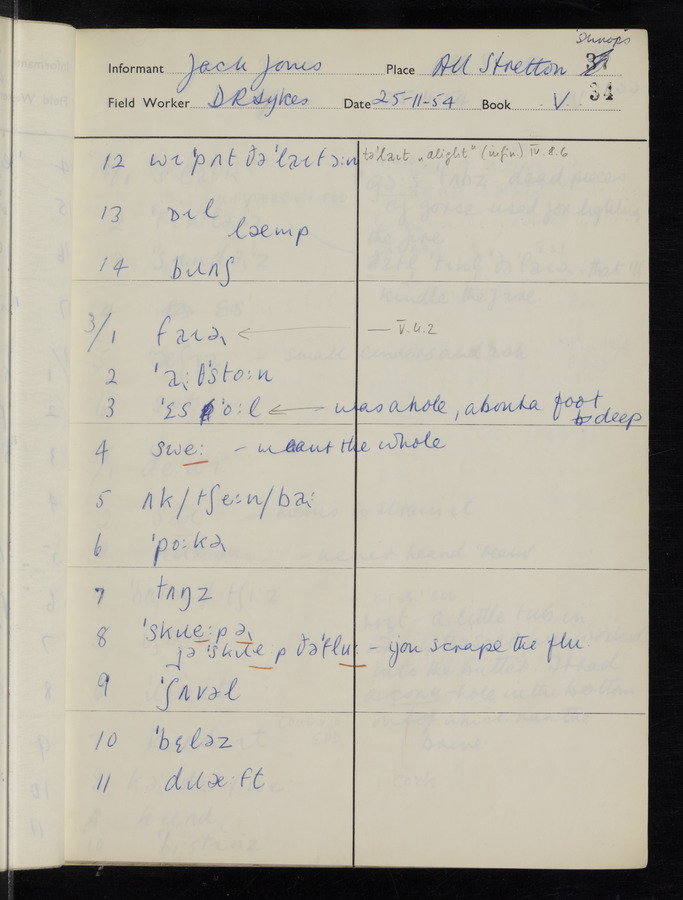 Shrops
Informant Jack Jones Place All Stretton 34
Field Worker D R Sykes Date 25-11-54 Book V.
12 wɪ ˈpʌt ðəˈlaɪt ɔ:n təˈlaɪt „alight" (infin.) IV.8.6
13 ɔɪl
læmp
14 bʌŋ
3/1 faɪə ← — V.4.2
2 ˈa:θsto:n
3 ˈɛsˈo:l ← was a hole, about a foot
deep
4 swe: – meant the whole
5 ʌk/tʃe:n/ba:
6 ˈpo:kə
7 tʌŋz
8 ˈskɹe:pə
jəˈskɹe:p ðəˈflu: – you scrape the flu.
9 ˈʃʌvəl
10 ˈbɛləz
11 dɹæft